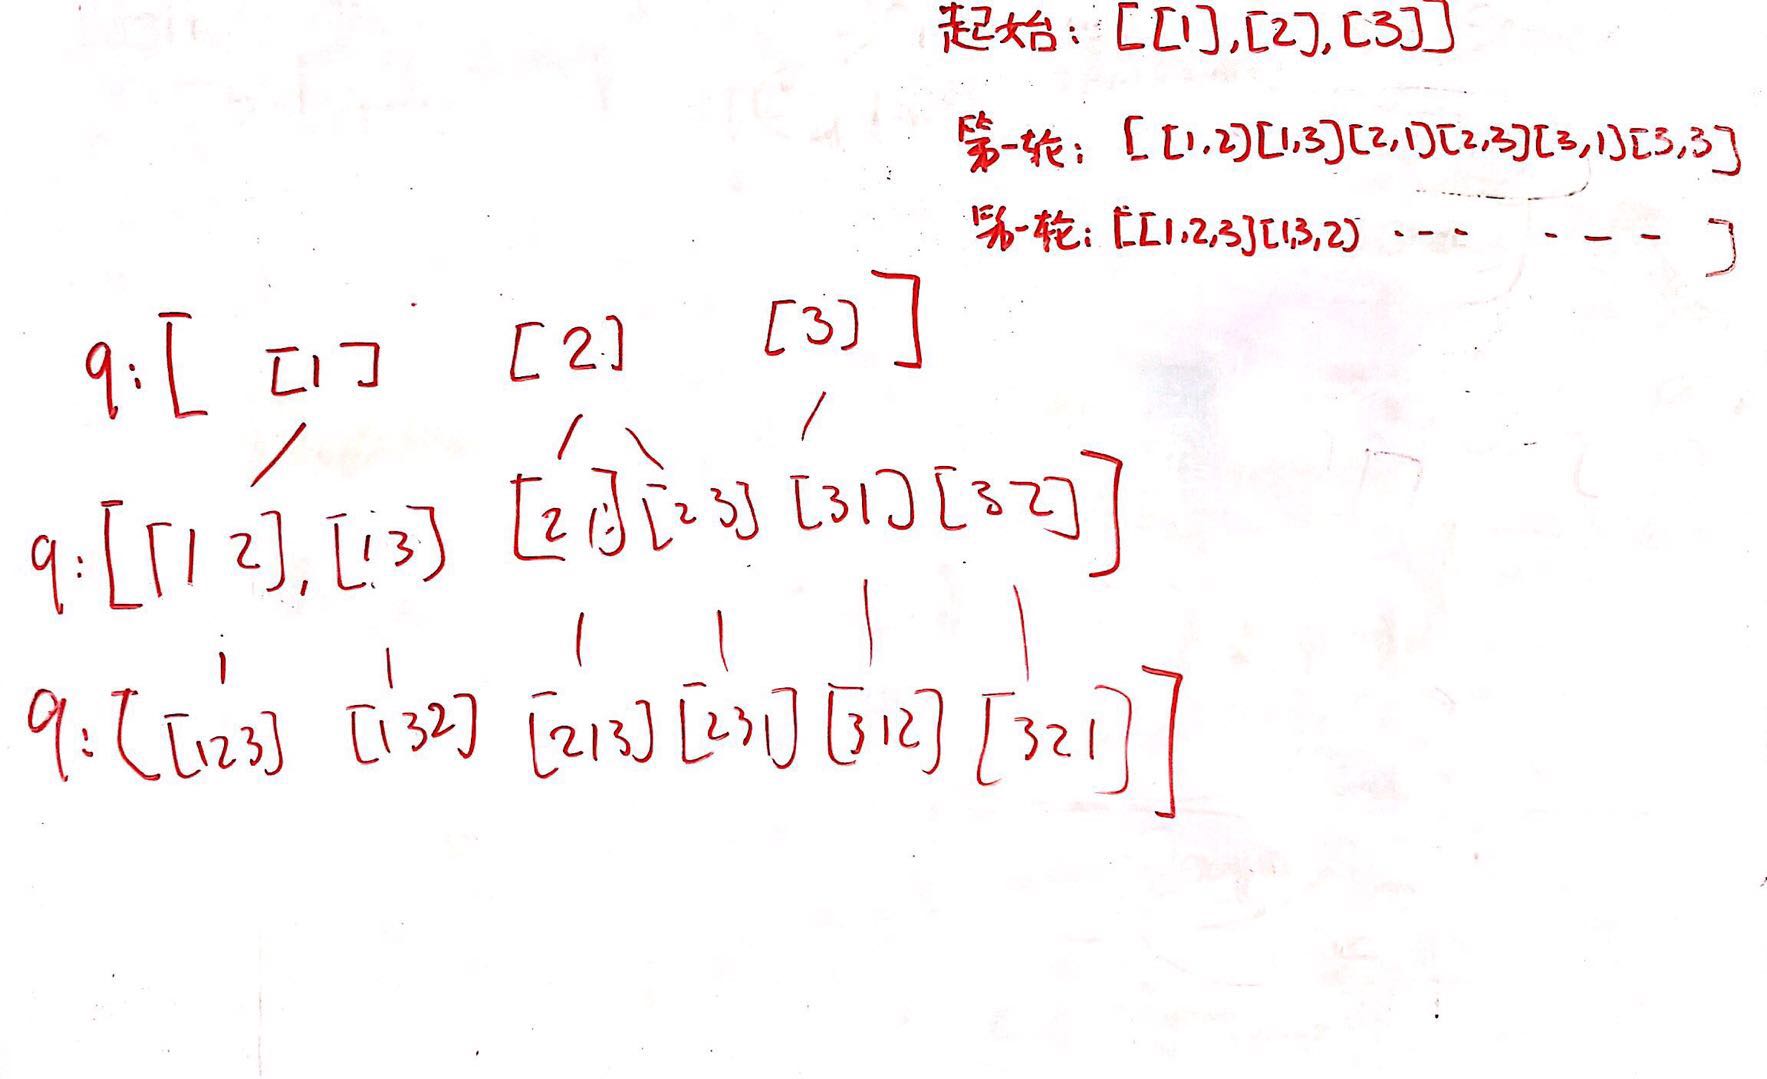 起始: [[1],[2],[3]]
第一轮: [[1,2)[1,3][2,1][2,3][3,1][3,3]
第一轮: [[1,2,3][1,3,2) --- ---- ]
q:[ [1] [2] [3] ]
q:[[1 2],[1 3] [2 1][2 3] [3 1] [3 2]]
q:[[123] [132] [213] [231] [312] [321]]